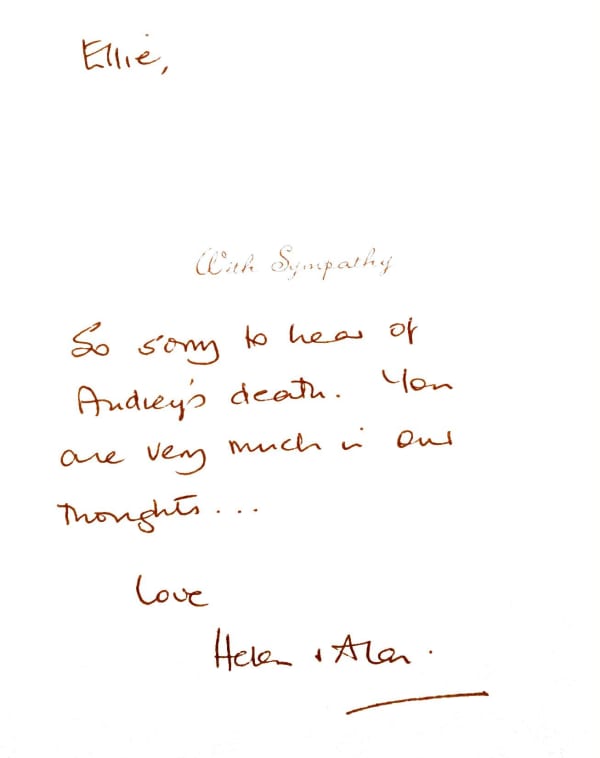 Ellie,
With Sympathy
So sorry to hear of
Audrey's death. You
are very much in our
thoughts...
Love
Helen + Alan.